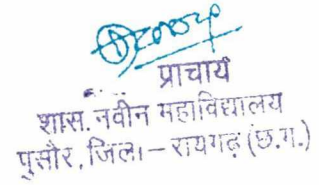 प्राचार्य
शास. नवीन महाविद्यालय
पुसौर, जिला – रायगढ़ (छ.ग.)